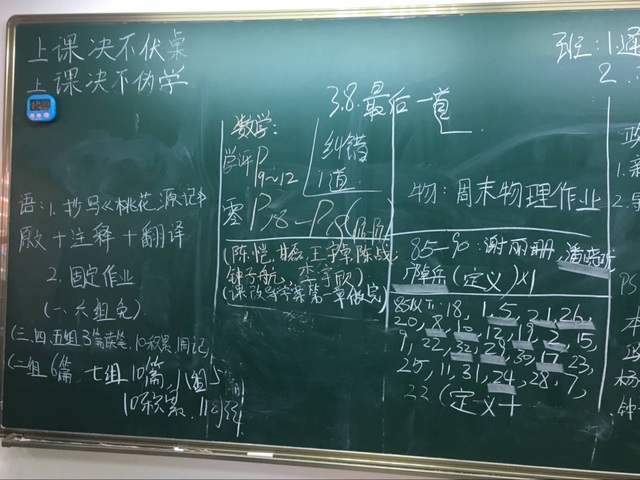 上课决不伏桌
上课决不伪学
12:00
3.8.最后一道
班:1.通
2.
数学:
学评P9~12
纠错
1道
零P78
语:1.抄写《桃花源记》
原文+注释+翻译
2.固定作业
(一、六组免)
(三、四、五组3篇读笔,10积累,周记)
(二组6篇 七组10篇,八组5
10积累
(陈恺,甘磊,王宇卓,陈战,
钟子航、李宇欣)
(课改导学案第一章做完)
物:周末物理作业
85-90:谢丽珊,潘晓欣
邝卓兵(定义)×1
85以下:18,1,5,21,26,
20,8,10,12,19,2,15,
9,22,3,29,30,17,23,
25,11,31,24,28,7,
22(定义+
政
1.
2.
PS
杨
钟